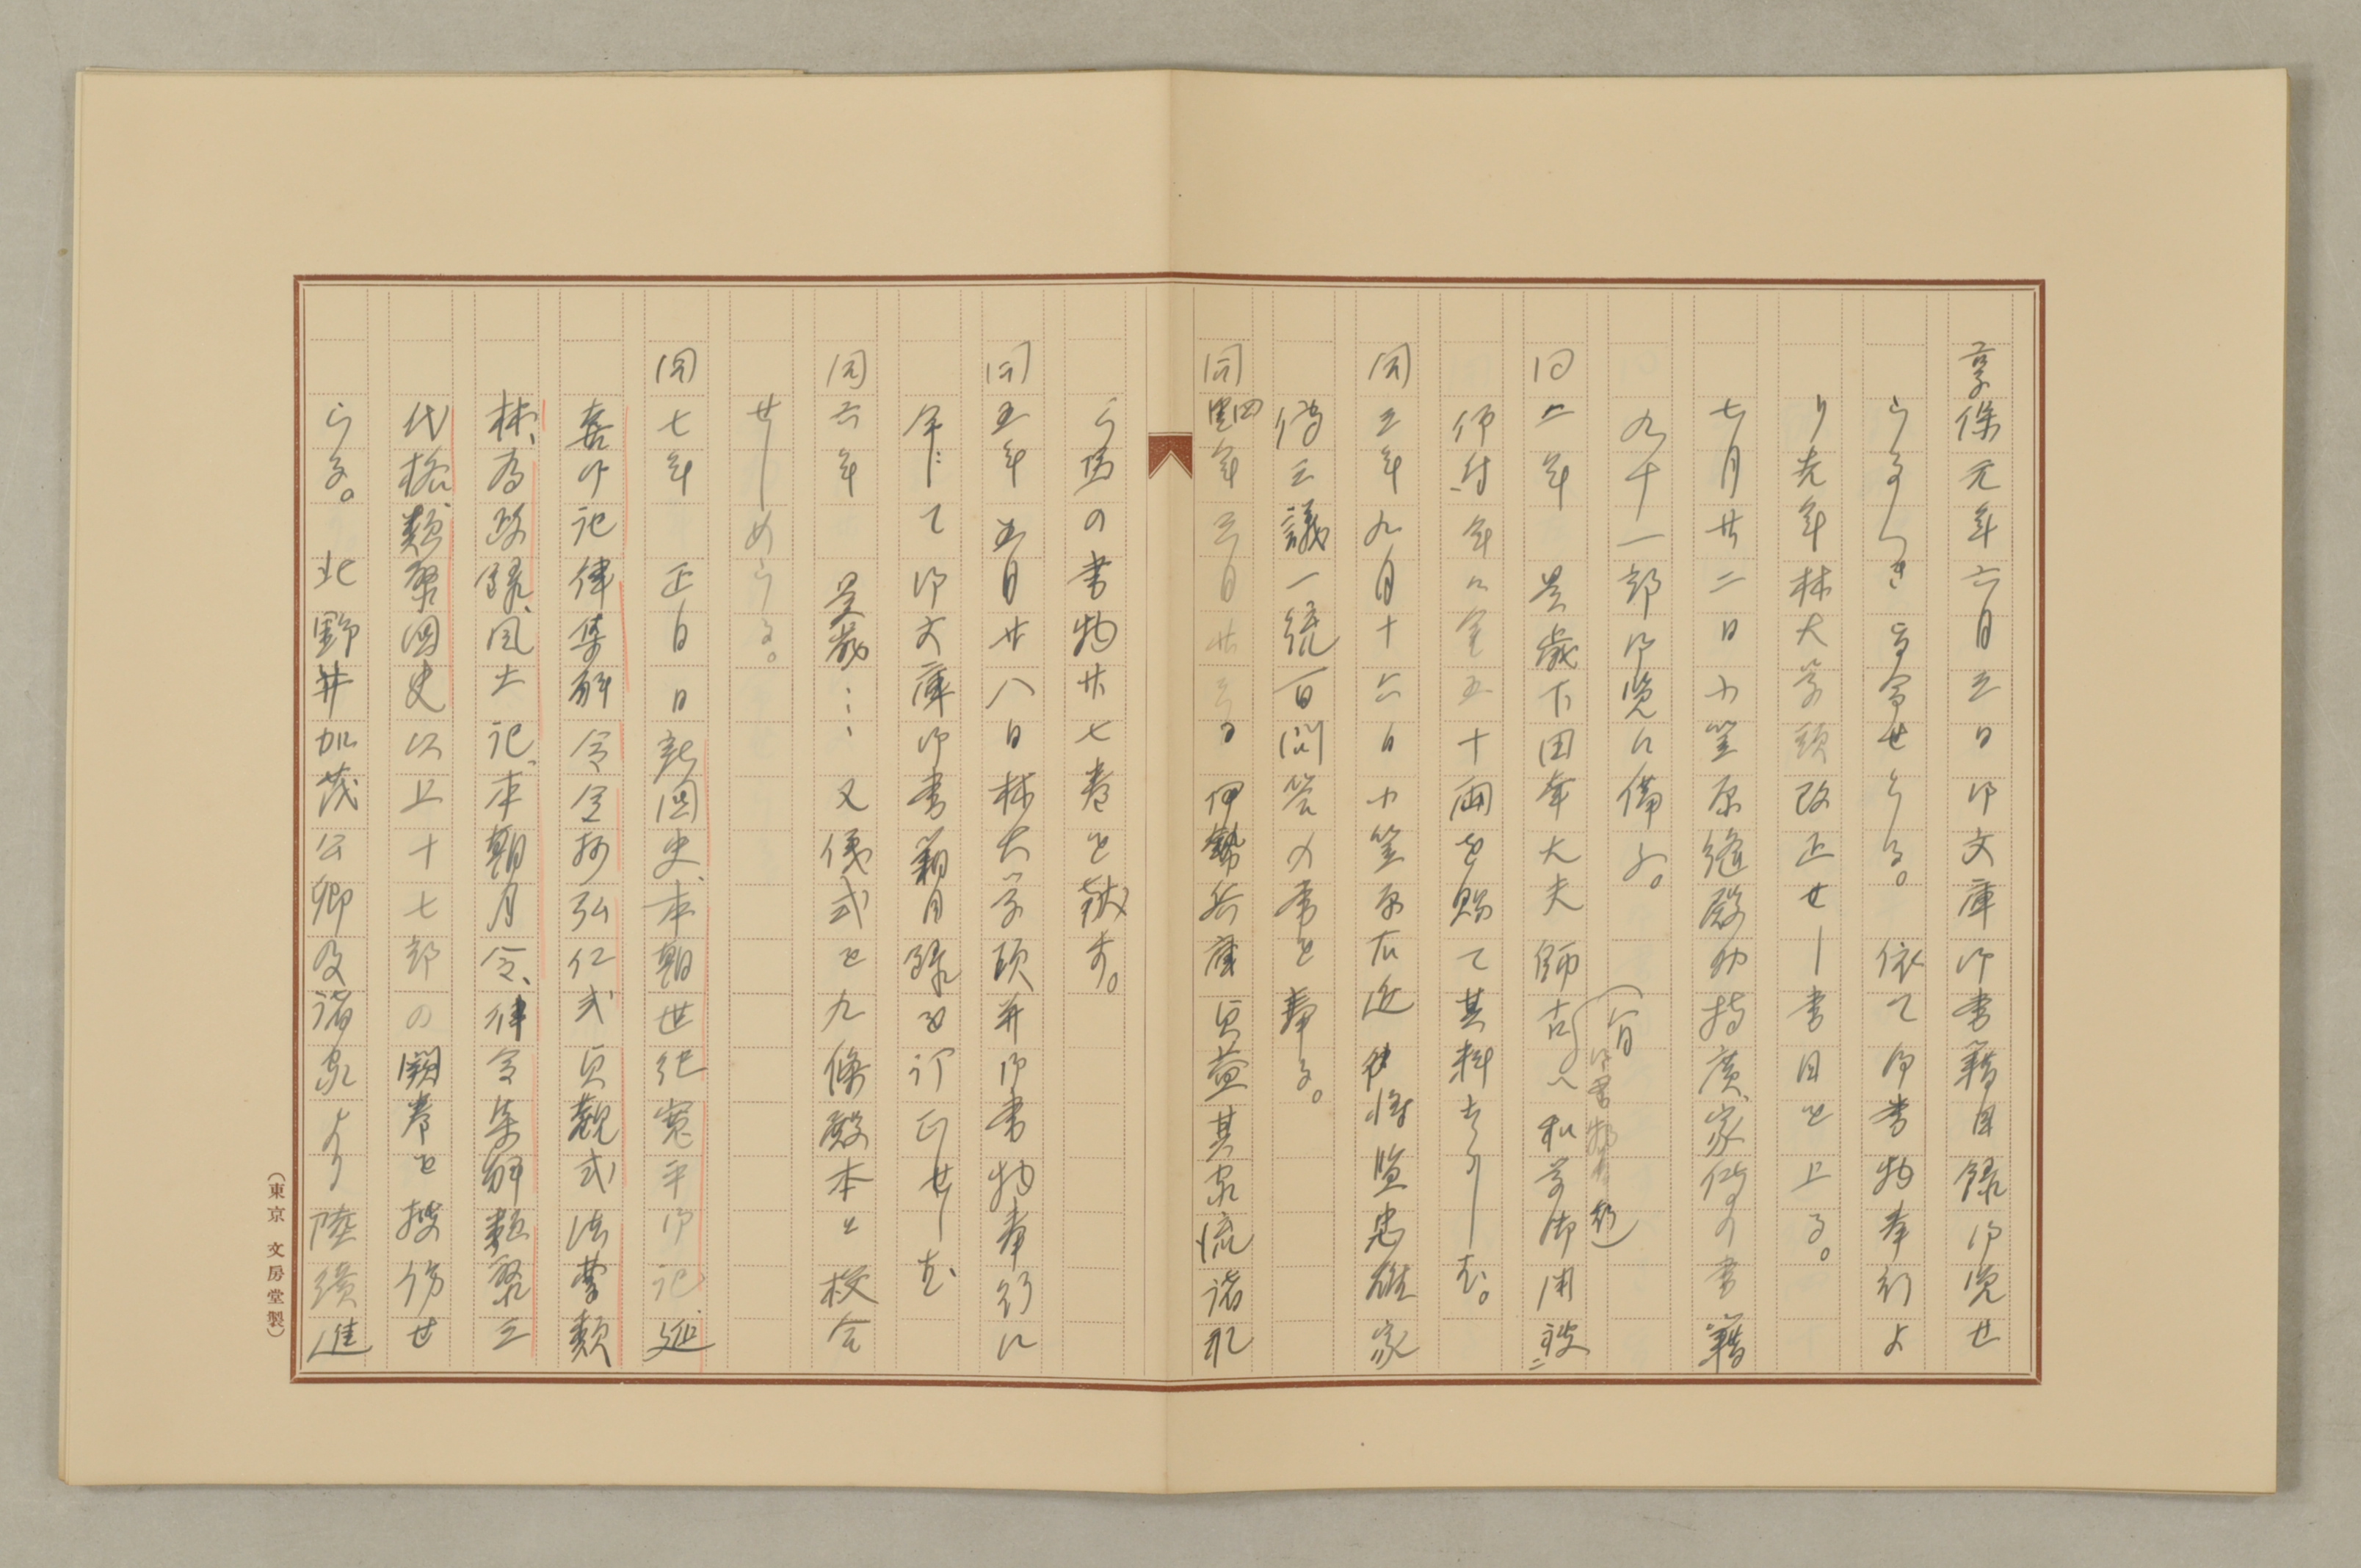 享保元年六月三日御文庫御書籍目録御覧せ
らるへき旨令せらる。依て御書物奉行よ
り先年林大学頭改正せし書目を上る。
七月廿二日小笠原縫殿助持廣、家傳の書籍
九十一部御覧に備ふ。
同二年 是歳下田幸大夫師古へ和学御用被
仰付年々金五十両を賜て其料去りし
同三年九月十六日小笠原右近将監忠雄家
傳三議一統百問答の書を奉る。
同四年三月廿三日伊勢兵庫貞益其家流諸礼
弓馬の書物廿七巻を献ず。
同五年五月廿八日林大学頭并御書物奉行に
命じて御文庫御書籍目録を訂正せしむ
同六年 是歳…… 又儀式を九條殿本と校合
せしめらる。
同七年 正月 日新國史、本朝世紀寛平御記延
喜御記律集解令令抄弘仁式貞観式法曹類
林、為政録、風土記、本朝月令、律令集解類聚三
代格、類聚國史以上十七部の闕巻を捜訪せ
らる。 北野井加茂公卿及諸家より陸續進
(東京 文房堂製)